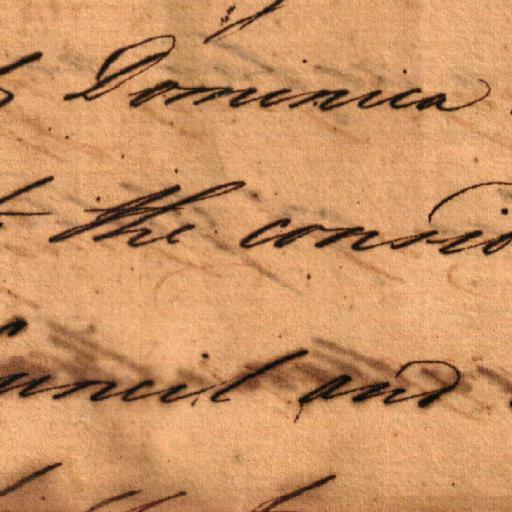 Dominica
the consid
ouncil and